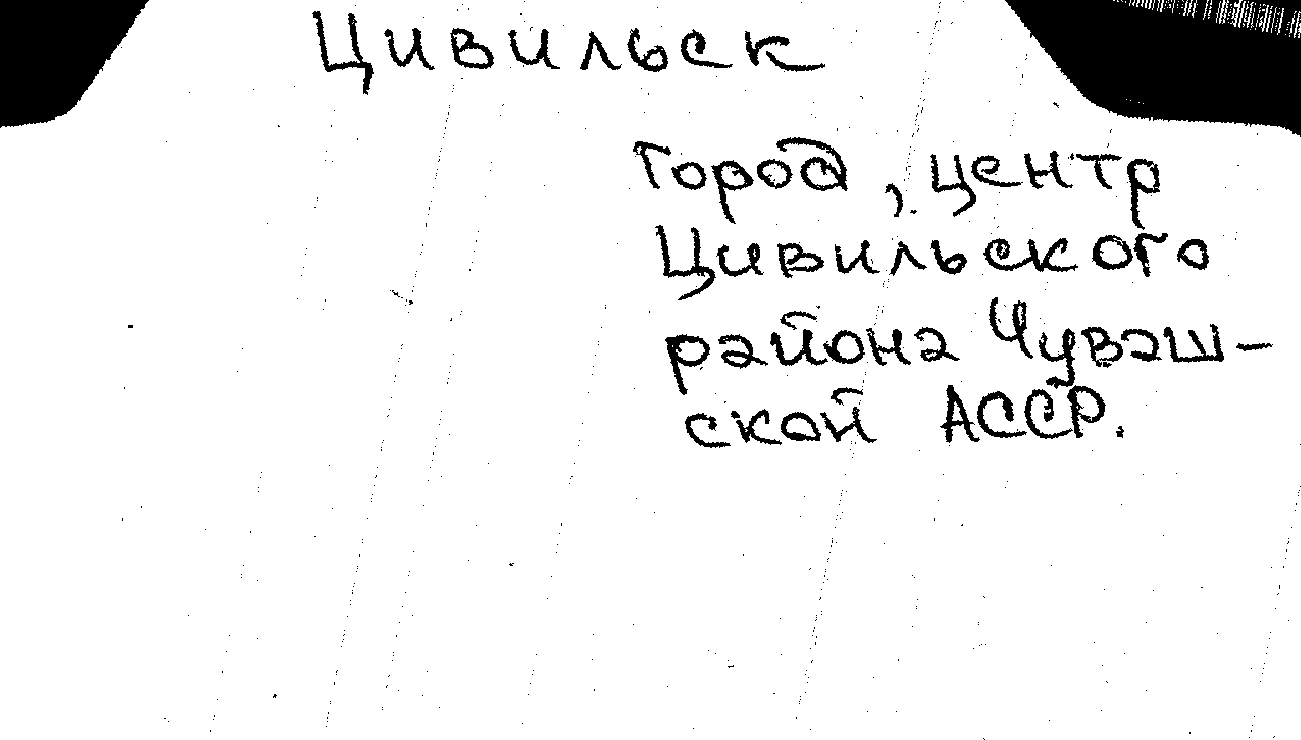 Цивильск
Город, центр
Цивильского
района Чуваш-
ской АССР.